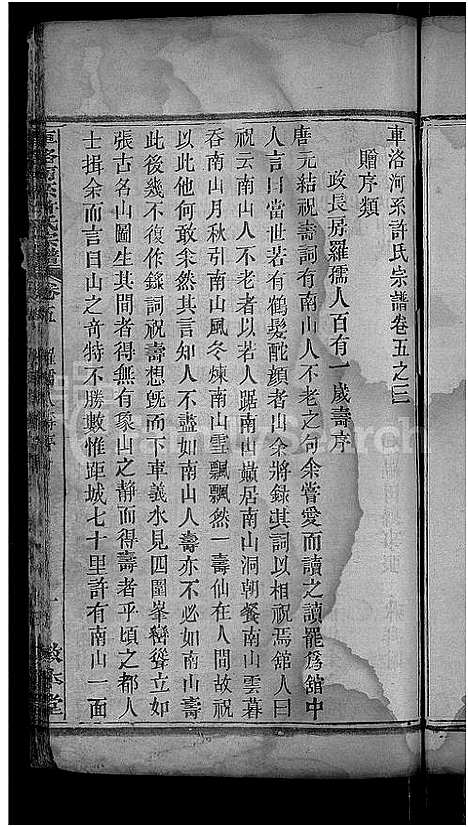 車洛河系許氏宗譜卷五之三
贈序類
政長房羅孺人百有一歲壽序
唐元結祝壽詞有南山人不老之句余嘗愛而讀之讀罷爲舘中
人言曰當世若有鶴髮酡顏者出余將錄其詞以相祝焉舘人曰
祝云南山人不老者以若人踞南山巓居南山洞朝餐南山雲暮
吞南山月秋引南山風冬煉南山雪飄飄然一壽仙在人間故祝
以此他何敢余然其言知人不盡如南山人壽亦不必如南山壽
此後幾不復作錄詞祝壽想旣而下車義水見四圍峯辮聳立如
張古名山圖生其間者得無有象山之靜而得壽者乎頃之都人
士揖余而言曰山之奇特不勝數惟距城七十里許有南山一面
卷五
敬本堂